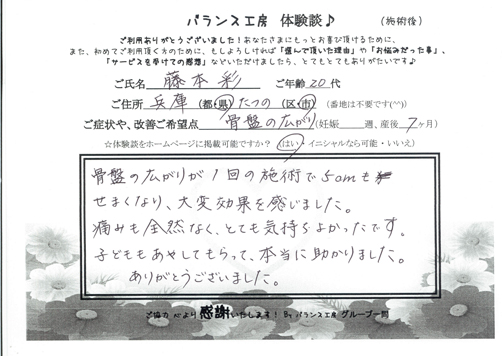 バランス工房 体験談♪ (施術後)
ご利用ありがとうございました！あなたさまにもっとお喜び頂けるために、
また、初めてご利用頂く方のために、もしよろしければ「選んで頂いた理由」や「お悩みだった事」、
「サービスを受けての感想」などいただけましたら、とてもとてもありがたいです♪
ご氏名 藤本彩 ご年齢20代
ご住所 兵庫(都・県)たつの(区・市) (番地は不要です(^^))
ご症状や、改善ご希望点 骨盤の広がり(妊娠 週、産後7ヶ月)
☆体験談をホームページに掲載可能ですか？(はい・イニシャルなら可能・いいえ)
骨盤の広がりが1回の施術で5cmも
せまくなり、大変効果を感じました。
痛みも全然なく、とても気持ちよかったです。
子どももあやしてもらって、本当に助かりました。
ありがとうございました。
ご協力 心より感謝いたします！ By バランス工房 グループ一同